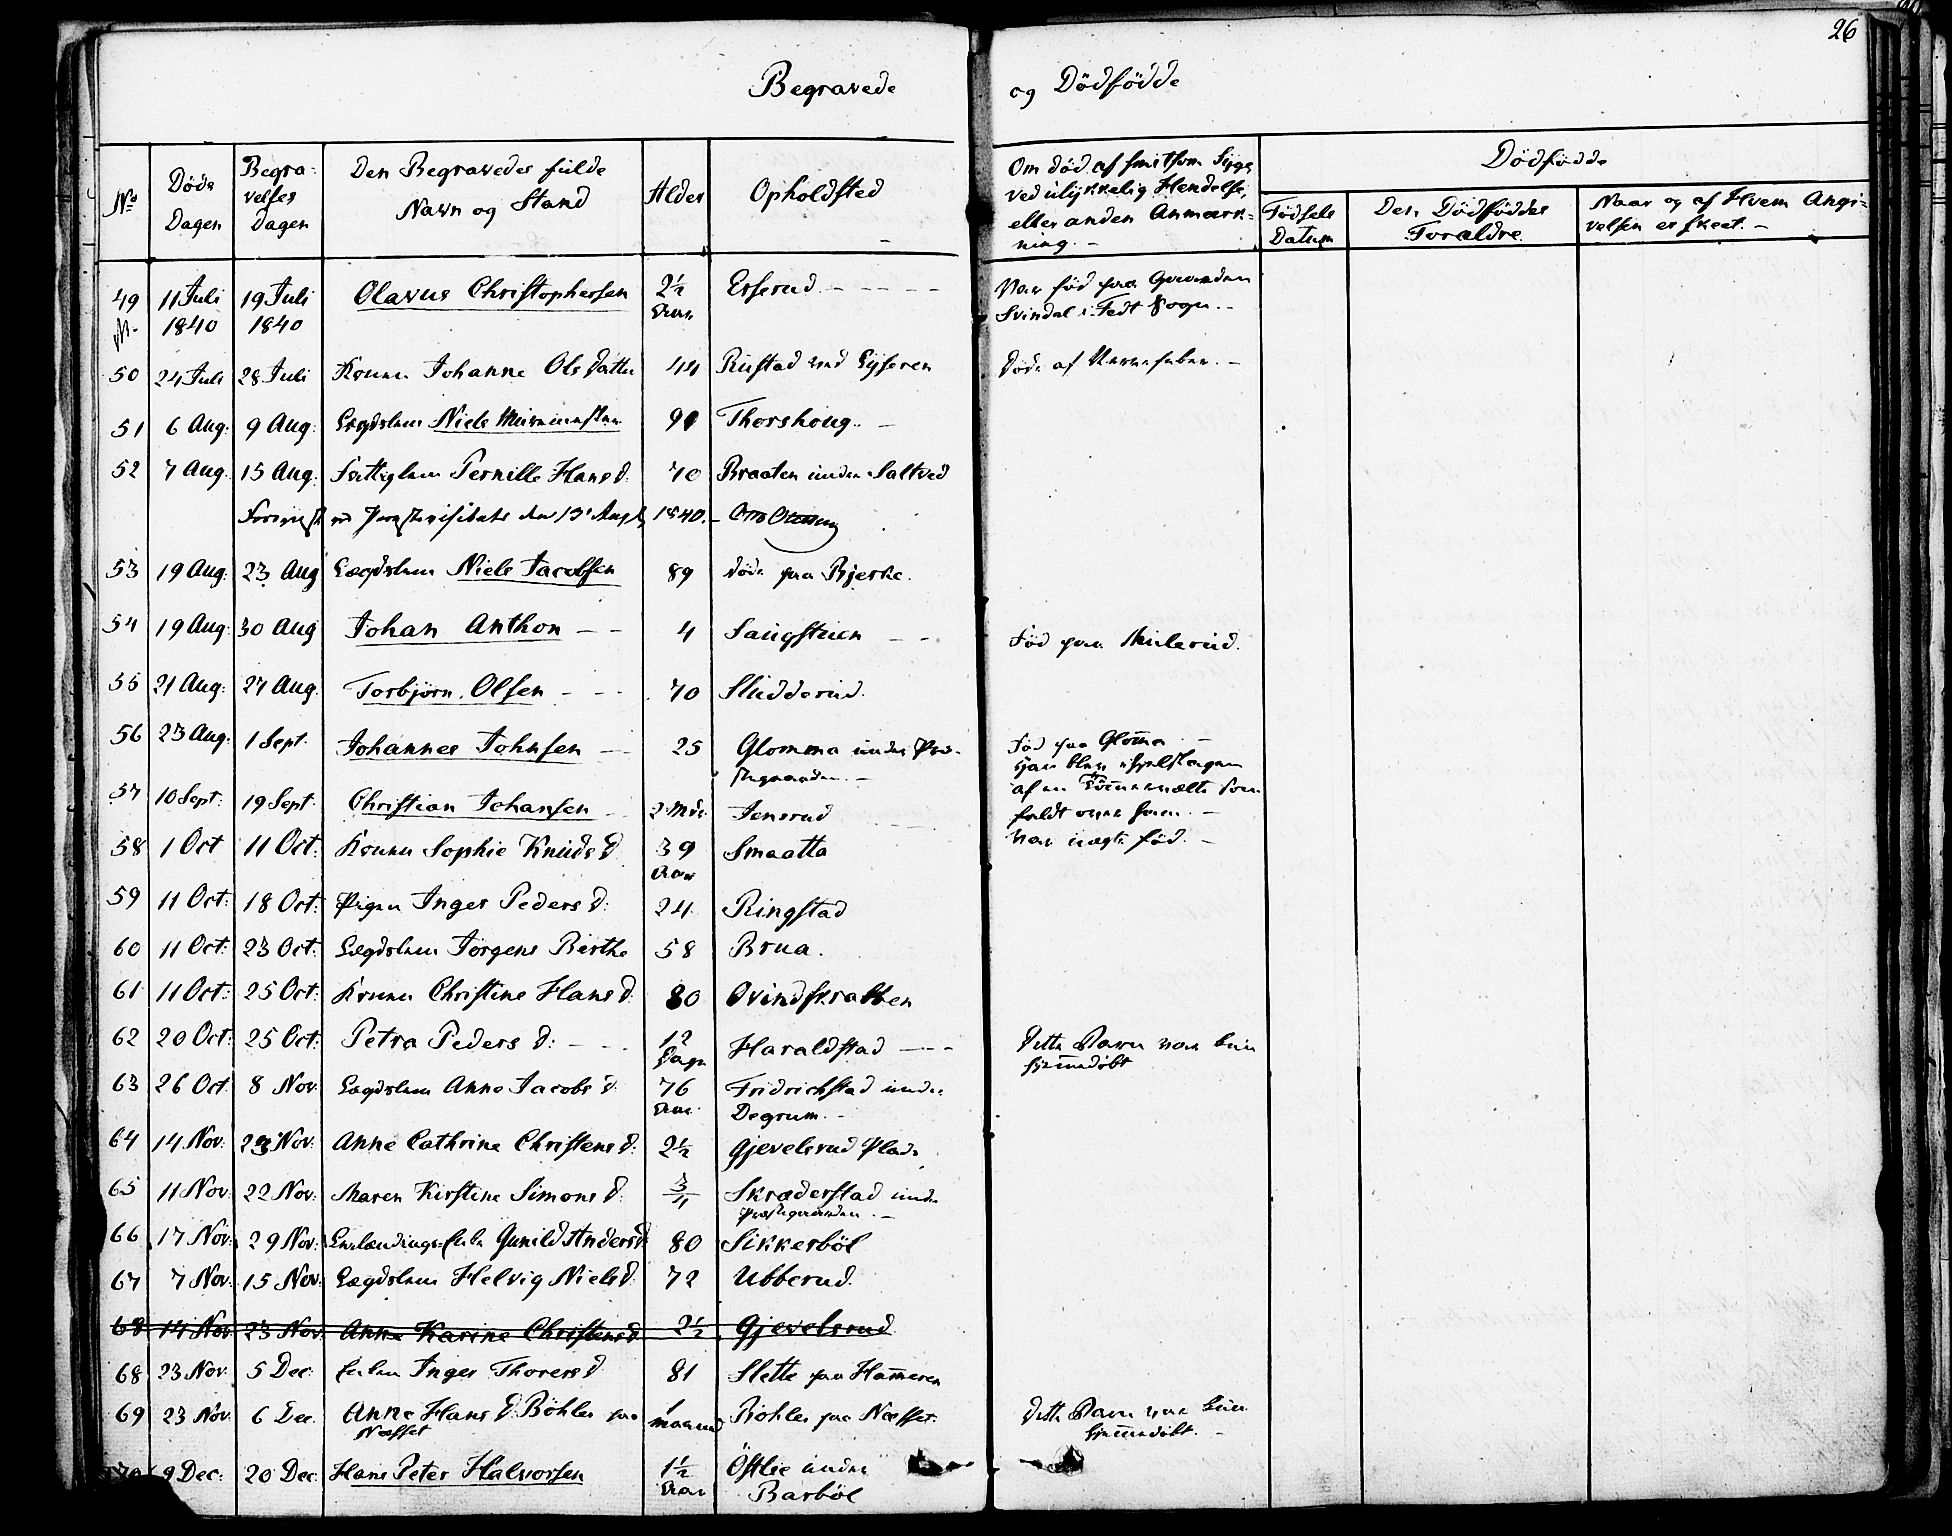 26
Begravede og Dödfödde
No
Döds Dagen
Begravelses Dagen
Den Begravedes fulde Navn og Stand
Alder
Opholdsted
Om död af smitsom Syge, ved ulykkelig Hendelse, eller anden Anmærkning. -
Dödfödde
Födsels Datum
Den Dödföddes Forældre.
Naar og af Hvem Angivelsen er skeet. -
49 11 Juli 1840 19 Juli 1840 Olavus Christophersen 2½ Aar Esserud - - - - Var föd paa Svindal i Sogn. -
50 24 Juli 28 Juli Konen Johanne Olsdatter 44 Rustad ved Lyseren döde af Nervefeber. -
51 6 Aug: 9 Aug: Lægdslem Niels Muurmester 90 Thorshoug. -
52 7 Aug. 15 Aug. Fattiglem Pernille Hansd: 70 Braaten under Saltved
Foreviist ved Provstevisitats den 13 Aug 1840. -
53 19 Aug: 23 Aug Lægdslem Niels Jacobsen 89 döde paa Bjerke.
54 19 Aug: 30 Aug Johan Anthon - - 4 Saugstuen - - föd paa Mulerud.
55 21 Aug: 27 Aug. Torbjörn Olsen - - - 70 Sludderud.
56 23 Aug: 1 Sept. Johannes Johnsen - 25 Glomma under Præstegaarden. - föd paa Glomma - Han blev af en Tömmervælte som faldt over ham. -
57 10 Sept: 19 Sept. Christian Johansen - 2 Mdr. Jensrud var uægte föd. -
58 1 Oct 11 Oct: Konen Sophie Knudsd 39 Aar Smaatta
59 11 Oct: 18 Oct: Pigen Inger Pedersd: 24 Ringstad
60 11 Oct: 23 Oct: Lægdslem Jörgens Berthe 58 Brua.
61 11 Oct: 25 Oct: Konen Christine Hansd: 80 Ovindskrabben
62 20 Oct: 25 Oct: Petra Pedersd: - - 12 Dage Haraldstad - - - dette Barn var kun hjemmedöbt
63 26 Oct. 8 Nov. Lægdslem Anne Jacobsd: 76 Aar. Fridrichstad under Degrum. -
64 14 Nov: 23 Nov. Anne Cathrine Christensd: 2½ Gjevelsrud Plads
65 11 Nov. 22 Nov: Maren Kirstine Simonsd: 3/4 Skræderstad under Præstegaarden. -
66 17 Nov: 29 Nov: Enke Gunild Andersd 80 Sikkerböl
67 7 Nov: 15 Nov: Lægdslem Helvig Nielsd: 72 Ubberud.
68 14 Nov 23 Nov. Anne Karine Christensd 2½ Gjevelsrud
68 23 Nov. 5 Dec: Enken Inger Thoresd 81 Slette paa Hammeren
69 23 Nov. 6 Dec. Anne Hansd: Böhler paa Næsset 1 maaned Böhler paa Næsset. dette Barn var kun hjemmedöbt. -
70 9 Dec: 20 Dec: Hans Peter Halvorsen 1½ Aar Östlie under Barböl